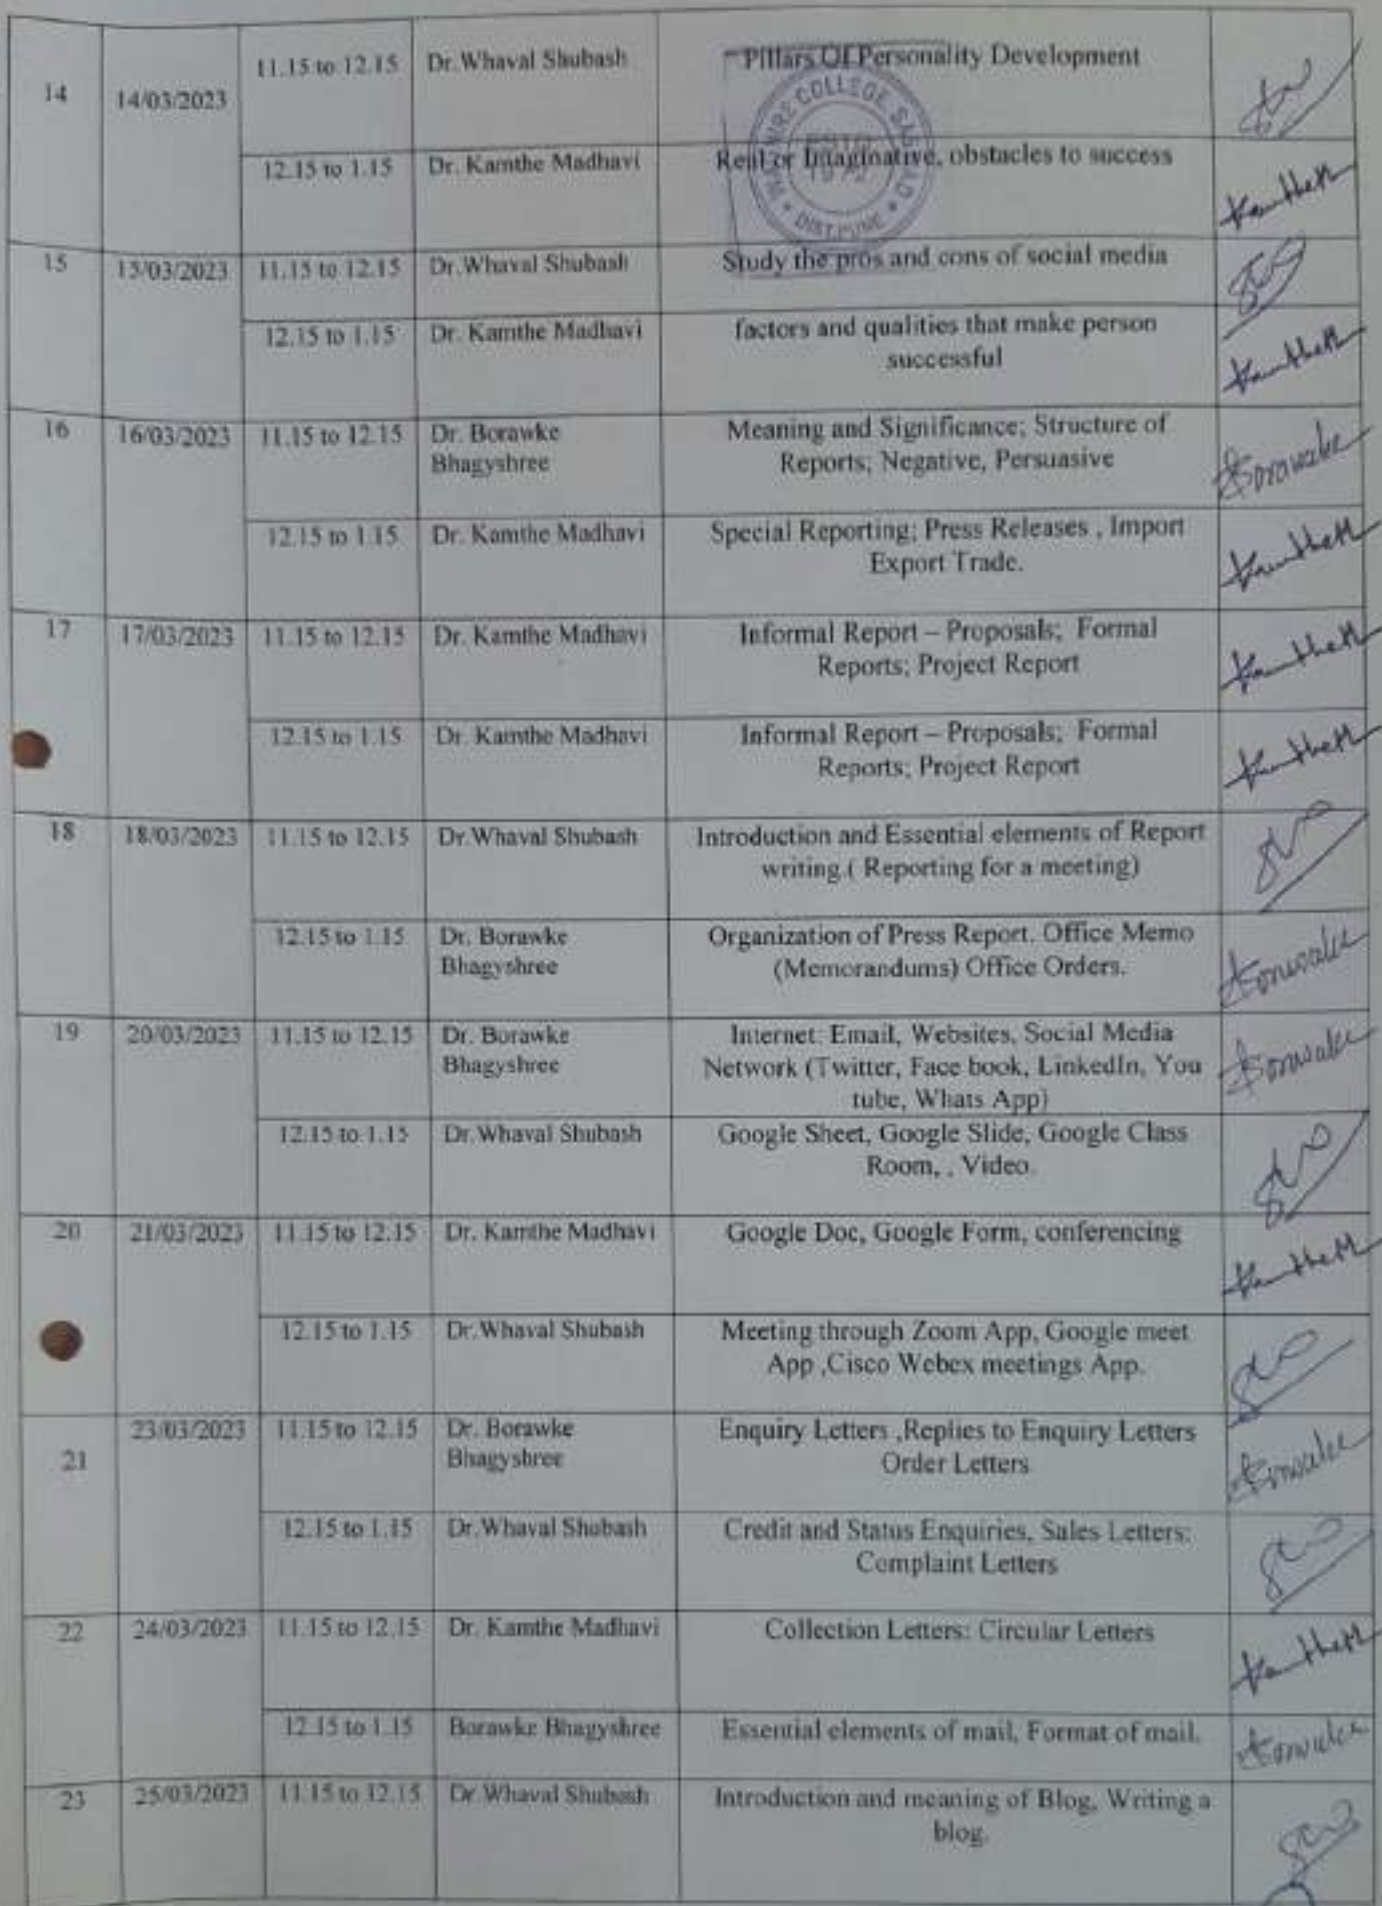 14 14/03/2023 11.15 to 12.15 Dr.Whaval Shubash Pillars Of Personality Development
WAGHIRE COLLEGE, SASWAD
ESTD
1972
DIST.PUNE
12.15 to 1.15 Dr. Kamthe Madhavi Real or Imaginative, obstacles to success
KamtheM
15 15/03/2023 11.15 to 12.15 Dr.Whaval Shubash Study the pros and cons of social media
12.15 to 1.15 Dr. Kamthe Madhavi factors and qualities that make person
successful
KamtheM
16 16/03/2023 11.15 to 12.15 Dr. Borawke Meaning and Significance; Structure of
Bhagyshree Reports; Negative, Persuasive
Borawake
12.15 to 1.15 Dr. Kamthe Madhavi Special Reporting; Press Releases , Import
Export Trade.
KamtheM
17 17/03/2023 11.15 to 12.15 Dr. Kamthe Madhavi Informal Report – Proposals; Formal
Reports; Project Report
KamtheM
12.15 to 1.15 Dr. Kamthe Madhavi Informal Report – Proposals; Formal
Reports; Project Report
KamtheM
18 18/03/2023 11.15 to 12.15 Dr.Whaval Shubash Introduction and Essential elements of Report
writing.( Reporting for a meeting)
12.15 to 1.15 Dr. Borawke Organization of Press Report. Office Memo
Bhagyshree (Memorandums) Office Orders.
Borawake
19 20/03/2023 11.15 to 12.15 Dr. Borawke Internet: Email, Websites, Social Media
Bhagyshree Network (Twitter, Face book, LinkedIn, You
tube, Whats App)
Borawake
12.15 to 1.15 Dr.Whaval Shubash Google Sheet, Google Slide, Google Class
Room, , Video.
20 21/03/2023 11.15 to 12.15 Dr. Kamthe Madhavi Google Doc, Google Form, conferencing
KamtheM
12.15 to 1.15 Dr.Whaval Shubash Meeting through Zoom App, Google meet
App ,Cisco Webex meetings App.
21 23/03/2023 11.15 to 12.15 Dr. Borawke Enquiry Letters ,Replies to Enquiry Letters
Bhagyshree Order Letters
Borawake
12.15 to 1.15 Dr.Whaval Shubash Credit and Status Enquiries, Sales Letters:
Complaint Letters
22 24/03/2023 11.15 to 12.15 Dr. Kamthe Madhavi Collection Letters: Circular Letters
KamtheM
12.15 to 1.15 Borawke Bhagyshree Essential elements of mail, Format of mail.
Borawake
23 25/03/2023 11.15 to 12.15 Dr.Whaval Shubash Introduction and meaning of Blog, Writing a
blog.